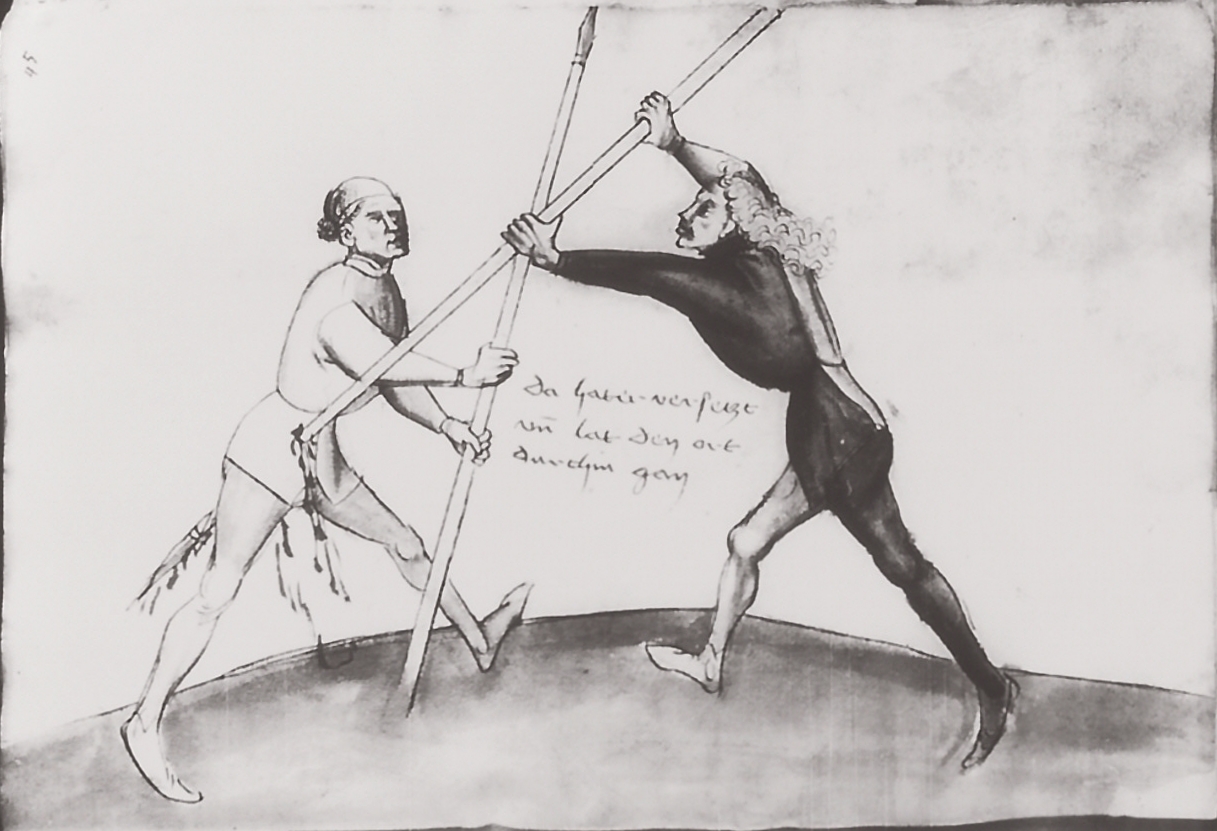 45
da hat er versetzt
vnd lat den ort
durchin gan